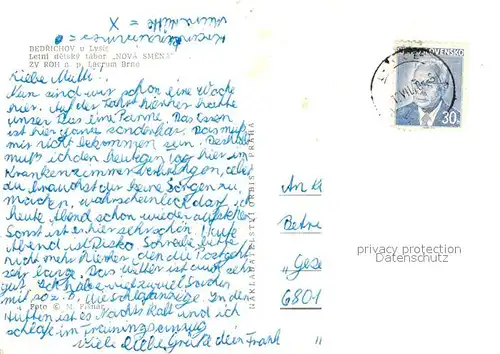 BEDŘICHOV u Lysic
Letní dětský tábor "NOVÁ SMĚNA"
ZV ROH n. p. Lacrum Brno
Liebe Mutti!
Nun sind wir schon eine Woche
hier. Auf der Fahrt hierher hatte
unser Bus eine Panne. Das Essen
ist hier ganz sonderbar. Das muß
mir nicht bekommen sein. Deshalb
muß ich den heutigen Tag hier im
Krankenzimmer verbringen, aber
du brauchst dir keine Sorgen zu
machen, wahrscheinlich darf ich
heute Abend schon wieder aufstehen
Sonst ist es hier sehr schön. Heute
Abend ist Disko. Schreibe bitte
nicht mehr hierher denn die Post geht
sehr lange. Das Wetter ist auch sehr
gut. Ich habe viel zu viel Sachen
mit so z. B. die Schlafanzüge. In den
Hütten ist es Nachts Kalt und ich
schlafe im Trainingsanzug
Viele liebe Grüße dein Frank
Foto © M.
NAKLADATELSTVÍ ORBIS PRAHA
SLOVENSKO
30
An
Betrie
"Gese
6801
"
privacy protection
Datenschutz